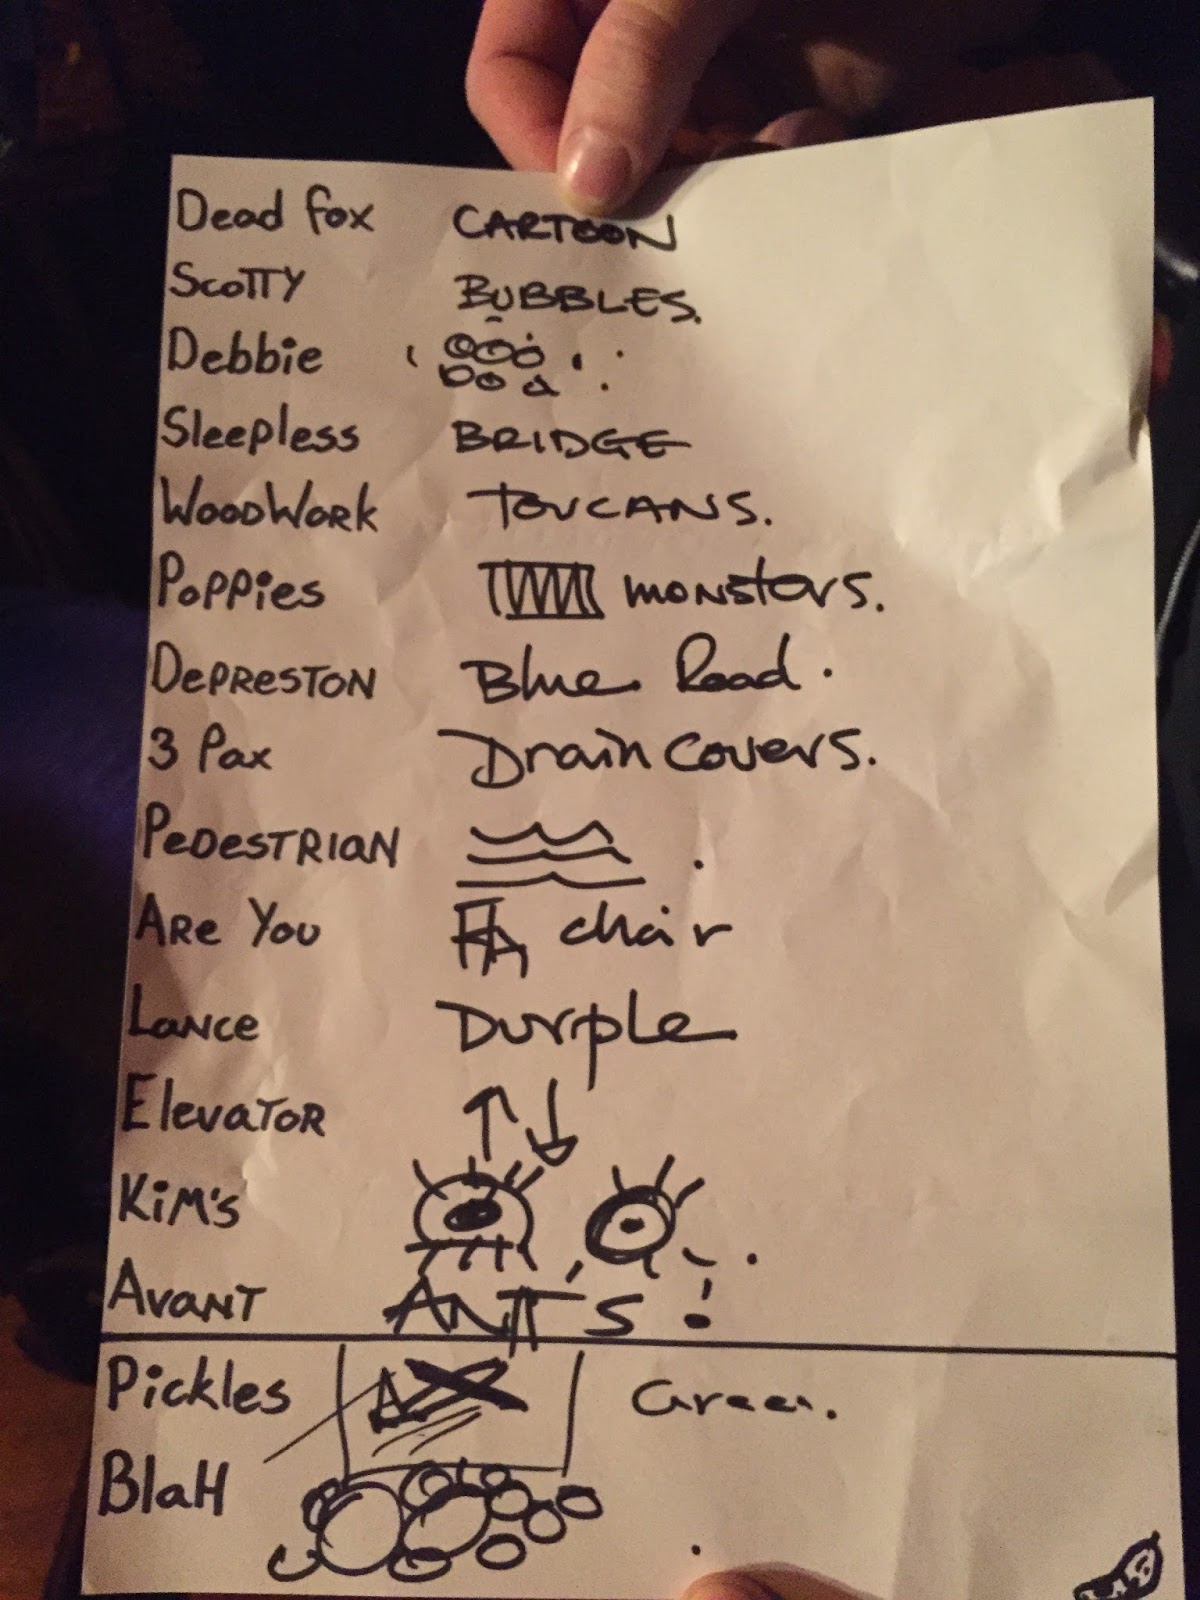 Dead Fox CARTOON
SCOTTY BUBBLES.
Debbie
Sleepless BRIDGE
WOODWORK TOUCANS.
POPPies monsters.
DePRESTON Blue Road.
3 Pax Drain Covers.
PeDeSTRIAN
ARe You chair
Lance Durple
ElevaTOR
KiM's
AvanT ANT'S!
Pickles Green.
BlaH